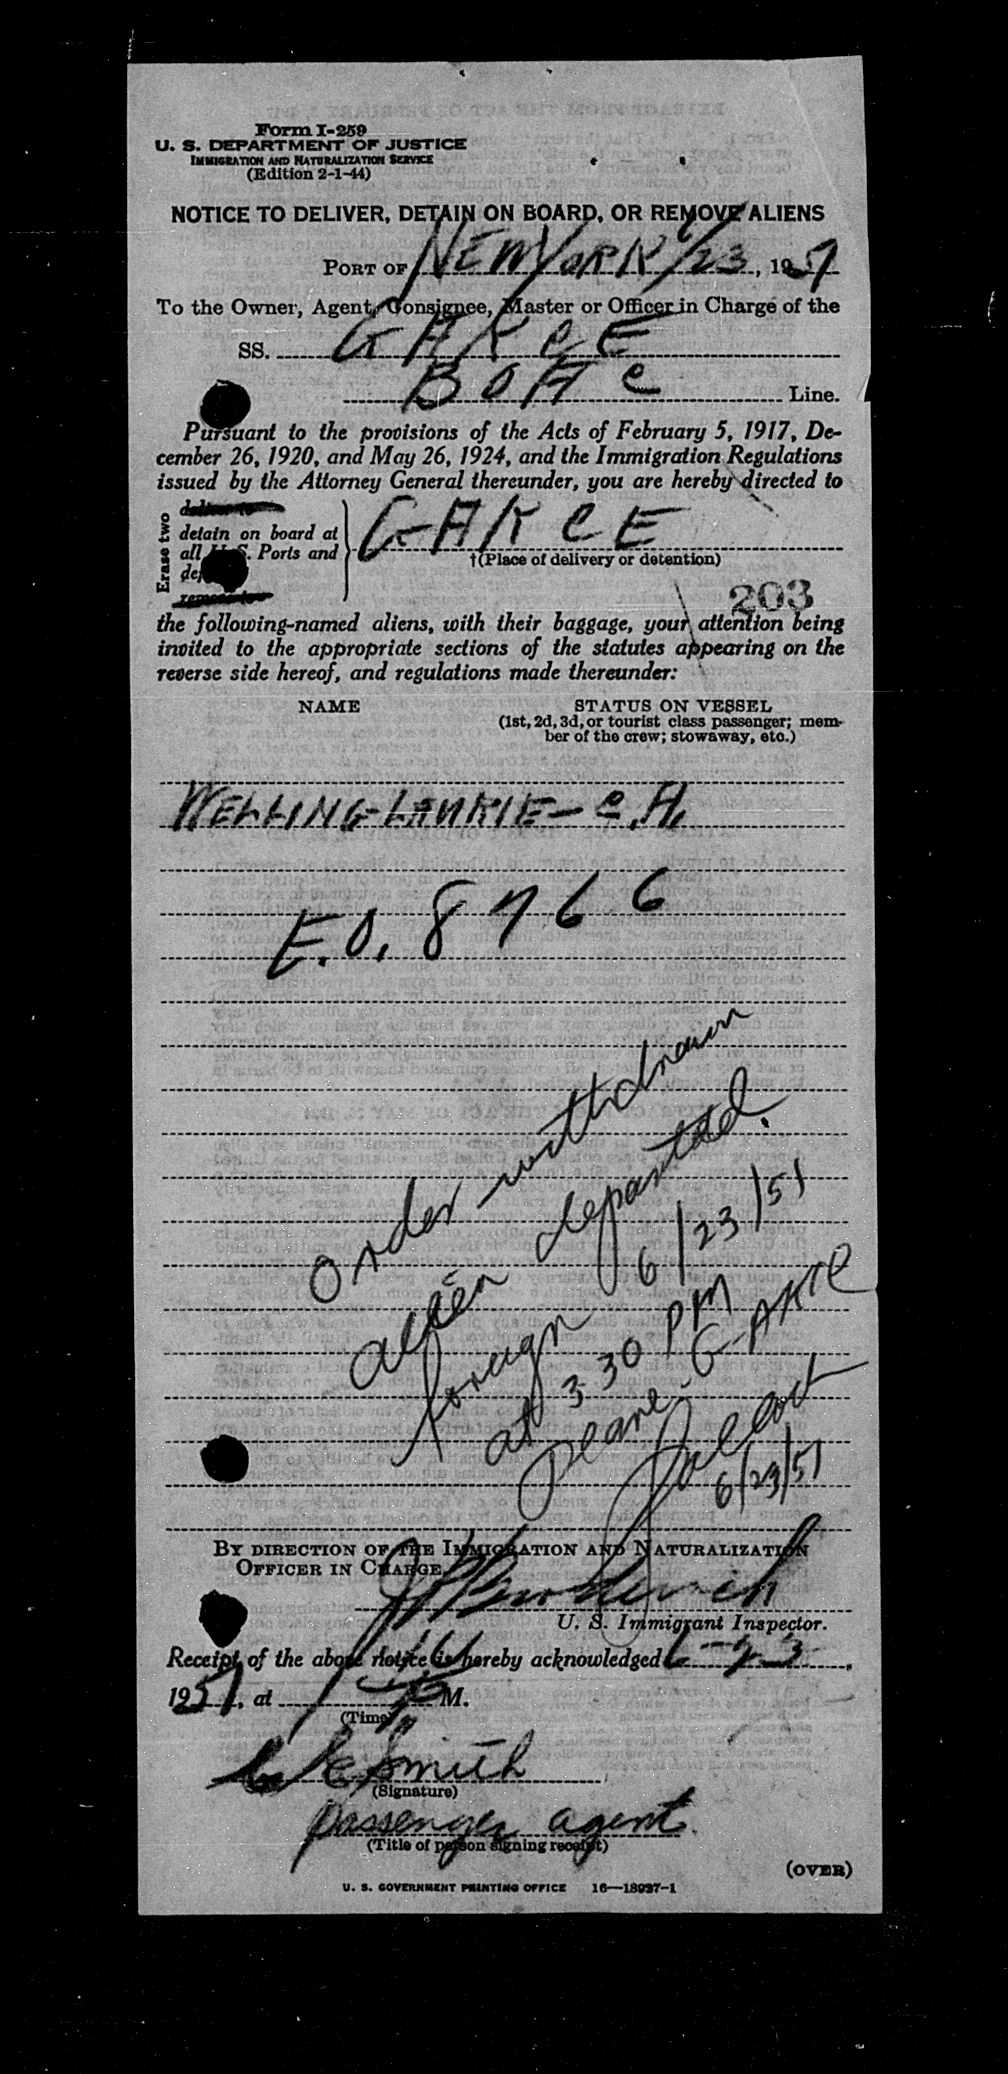 Form I-259
U. S. DEPARTMENT OF JUSTICE
IMMIGRATION AND NATURALIZATION SERVICE
(Edition 2-1-44)
NOTICE TO DELIVER, DETAIN ON BOARD, OR REMOVE ALIENS
PORT OF NEW YORK 6/23, 1951
To the Owner, Agent, Consignee, Master or Officer in Charge of the
SS. GAKCE
BOAC Line.
Pursuant to the provisions of the Acts of February 5, 1917, De-
cember 26, 1920, and May 26, 1924, and the Immigration Regulations
issued by the Attorney General thereunder, you are hereby directed to
Erase two
deliver to
detain on board at
all U.S. Ports and
GAKCE
†(Place of delivery or detention)
remove to
203
the following-named aliens, with their baggage, your attention being
invited to the appropriate sections of the statutes appearing on the
reverse side hereof, and regulations made thereunder:
NAME STATUS ON VESSEL
(1st, 2d, 3d, or tourist class passenger; mem-
ber of the crew; stowaway, etc.)
WELLING-LAURIE-C.A.
E.O. 8766
Order withdrawn
alien departed
foreign 6/23/51
at 3 30 PM
Plane-G-AKCE
6/23/51
BY DIRECTION OF THE IMMIGRATION AND NATURALIZATION
OFFICER IN CHARGE
U. S. Immigrant Inspector.
Receipt of the above notice is hereby acknowledged 6-23,
1951, at M.
(Time)
Smith
(Signature)
passenger agent.
(Title of person signing receipt)
(OVER)
U. S. GOVERNMENT PRINTING OFFICE 16—18937-1